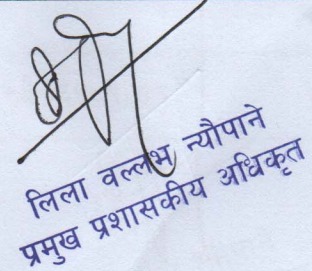 लिला वल्लभ न्यौपाने
प्रमुख प्रशासकीय अधिकृत